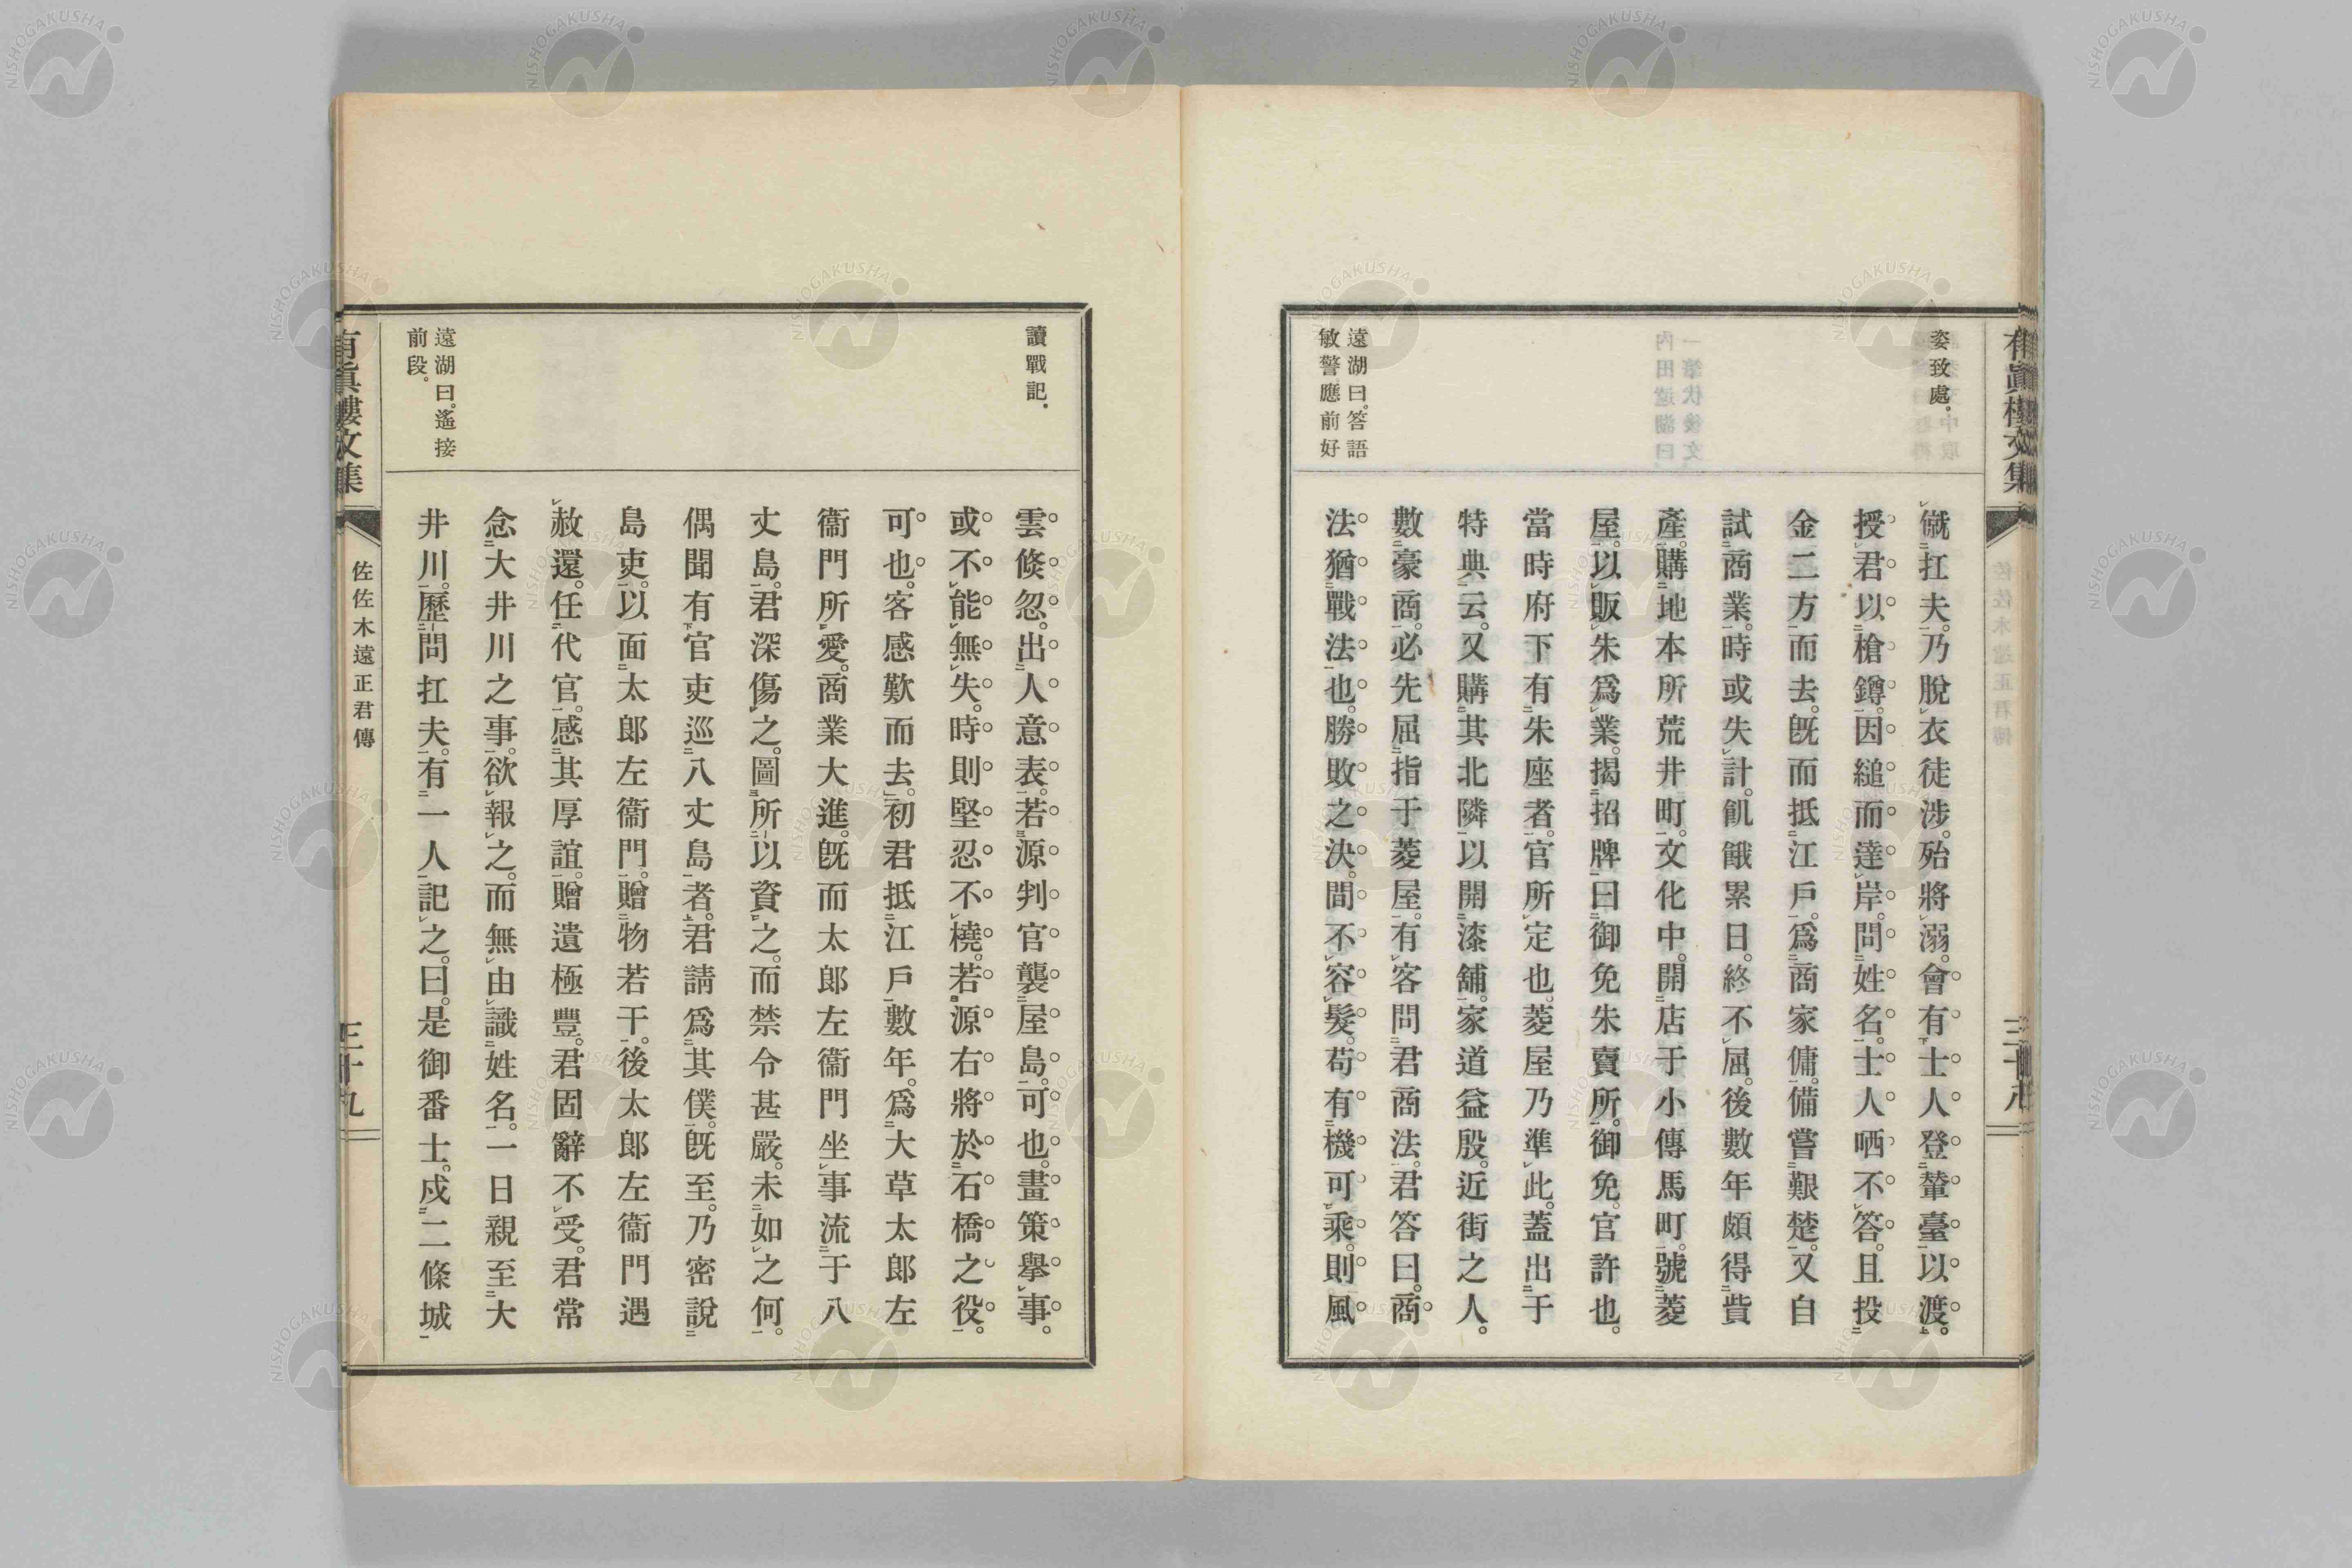 有眞樓文集
三十八
姿致處。
遠湖曰。答語
敏警應前好
僦扛夫。乃脫衣徒涉。殆將溺。會有士人登輦臺以渡。
授君以槍鐏。因縋而達岸。問姓名。士人哂不答。且投
金二方而去。旣而抵江戶。爲商家傭。備嘗艱楚。又自
試商業。時或失計。飢餓累日。終不屈。後數年頗得貲
產。購地本所荒井町。文化中。開店于小傳馬町。號菱
屋。以販朱爲業。揭招牌曰御免朱賣所。御免。官許也。
當時府下有朱座者。官所定也。菱屋乃準此。蓋出于
特典云。又購其北隣以開漆舖。家道益殷。近街之人。
數豪商。必先屈指于菱屋。有客問君商法。君答曰。商
法猶戰法也。勝敗之決。間不容髮。苟有機可乘。則風
讀戰記。
遠湖曰。遙接
前段。
雲倐忽。出人意表。若源判官襲屋島。可也。畫策擧事。
或不能無失。時則堅忍不橈。若源右將於石橋之役。
可也。客感歎而去。初君抵江戶數年。爲大草太郞左
衞門所愛。商業大進。旣而太郞左衞門坐事流于八
丈島。君深傷之。圖所以資之。而禁令甚嚴。未如之何。
偶聞有官吏巡八丈島者。君請爲其僕。旣至。乃密說
島吏。以面太郞左衞門。贈物若干。後太郞左衞門遇
赦還。任代官。感其厚誼。贈遺極豐。君固辭不受。君常
念大井川之事。欲報之。而無由識姓名。一日親至大
井川。歷問扛夫。有一人記之。曰。是御番士。戍二條城
有眞樓文集
佐佐木遠正君傳
三十九